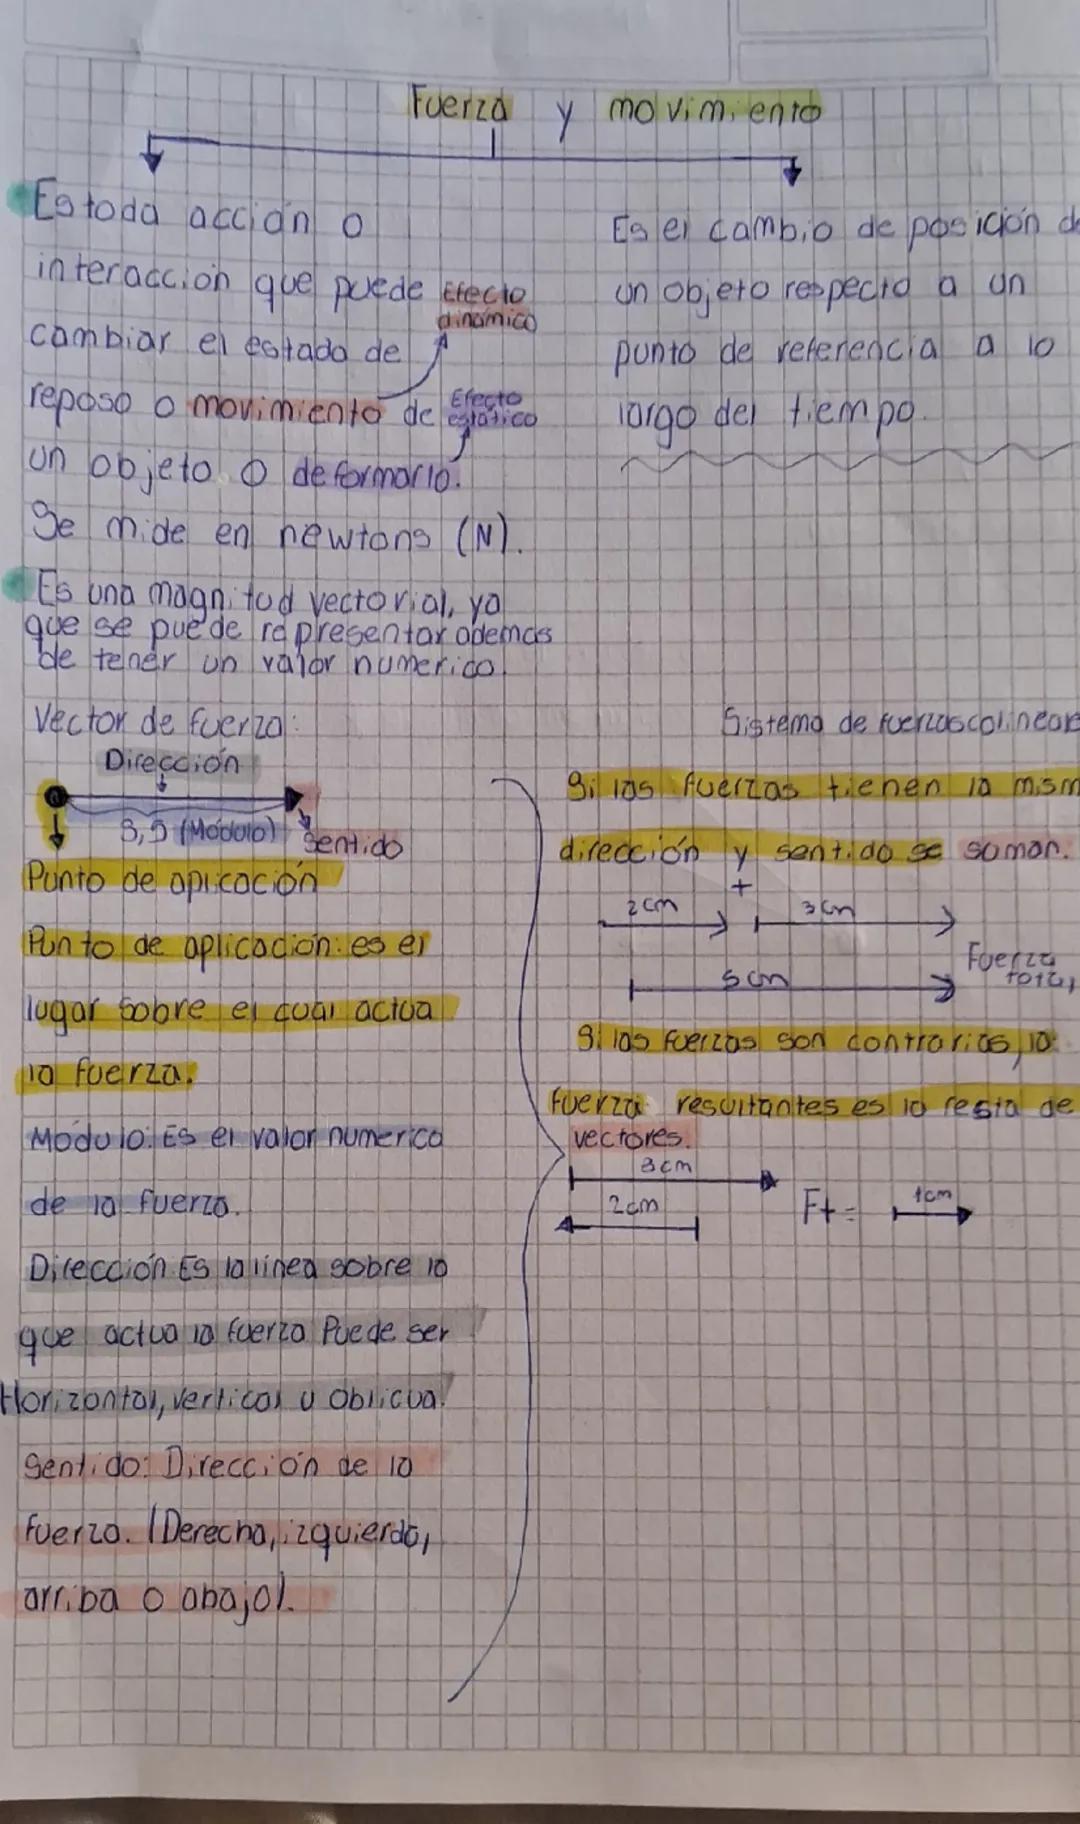 Fuerza y movimiento
Es toda acción o
interacción que puede
cambiar el estado de
reposo o movimiento de
un objeto o deformarlo.
Efecto
dinámico
Efecto
estático
Se mide en newtons (N).
Es una magnitud vectorial, ya
que se puede representar ademas
de tener un valor numerico.
Es el cambio de posición de
un objeto respecto a un
punto de referencia a lo
largo del tiempo.
Vector de fuerza:
Dirección
(Módulo)
Sentido
Punto de aplicación
Punto de aplicación: es el
lugar sobre el cual actua
la fuerza.
Módulo: Es el valor numerico
de la fuerza.
Dirección: Es la linea sobre la
que actua la fuerza Puede ser
Horizontal, vertical u oblicua.
Sentido: Dirección de la
fuerza. (Derecha, izquierda,
arriba o abajo).
Sistema de fuerzas colineare
Si las fuerzas tienen la mism
dirección y sentido se suman.
2cm + 3cm
5cm
Fuerza
total
Si las fuerzas son contrarias, la
fuerza resultantes es la resta de
vectores.
3cm
2cm
Ft = 1cm